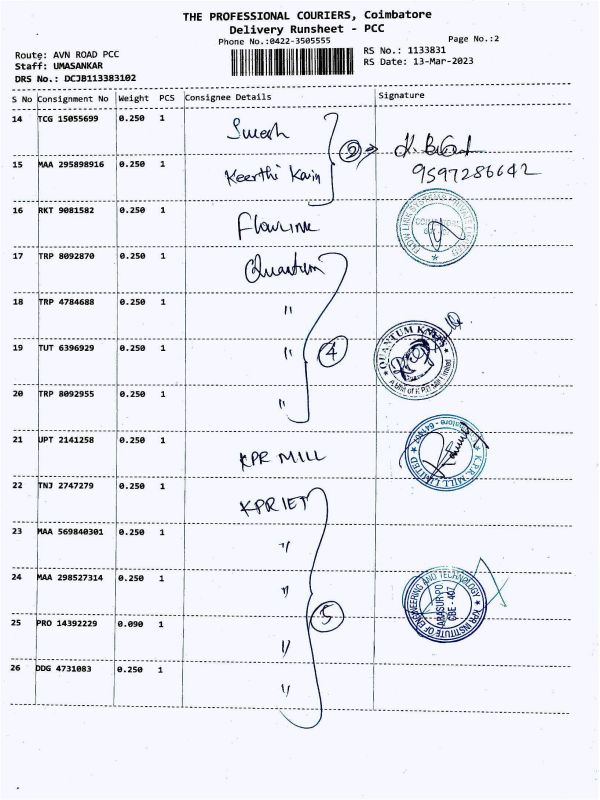 THE PROFESSIONAL COURIERS, Coimbatore
Delivery Runsheet - PCC
Phone No.:0422-3505555
Page No.:2
Route: AVN ROAD PCC
RS No.: 1133831
Staff: UMASANKAR
RS Date: 13-Mar-2023
DRS No.: DCJB113383102
S No Consignment No Weight PCS Consignee Details Signature
14 TCG 15055699 0.250 1
15 MAA 295898916 0.250 1 Keerthi
9597286642
16 RKT 9081582 0.250 1 Flowlink
17 TRP 8092870 0.250 1 Quantum
18 TRP 4784688 0.250 1 "
19 TUT 6396929 0.250 1 " 4 QUANTUM KNITS
20 TRP 8092955 0.250 1 "
21 UPT 2141258 0.250 1 KPR MILL K.P.R. MILL LIMITED
22 TNJ 2747279 0.250 1 KPRIET
23 MAA 569840301 0.250 1 "
24 MAA 298527314 0.250 1 " KPR INSTITUTE OF ENGINEERING AND TECHNOLOGY
ARASUR-PO
CBE - 407
25 PRO 14392229 0.090 1 " 5
26 DDG 4731083 0.250 1 "